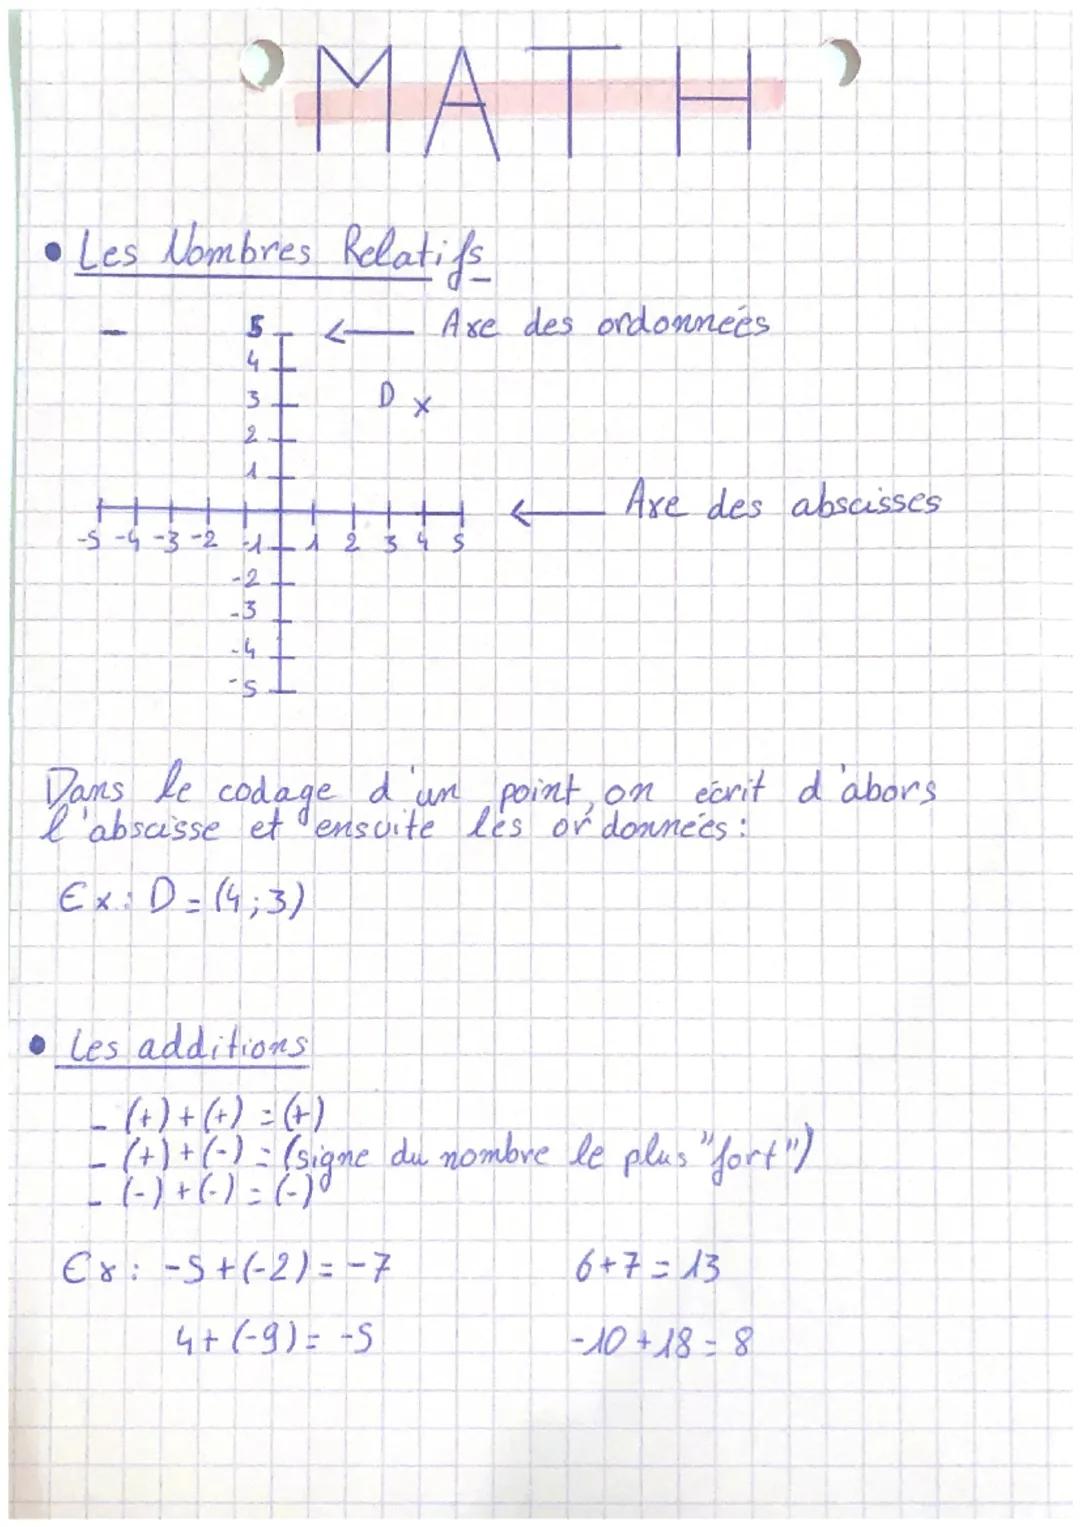 MATH
• Les Nombres Relatifs
- 5 ← Axe des ordonneés
4
3 D x
2
1
← Axe des abscisses
-5 -4 -3 -2 -1 1 2 3 4 5
-2
-3
-4
-5
Dans le codage d'un point, on écrit d'abors
l'abscisse et ensuite les ordonneés :
Ex : D = (4 ; 3)
• Les additions
- (+) + (+) = (+)
- (+) + (-) = (signe du nombre le plus "fort")
- (-) + (-) = (-)
Ex : -5 + (-2) = -7 6 + 7 = 13
4 + (-9) = -5 -10 + 18 = 8